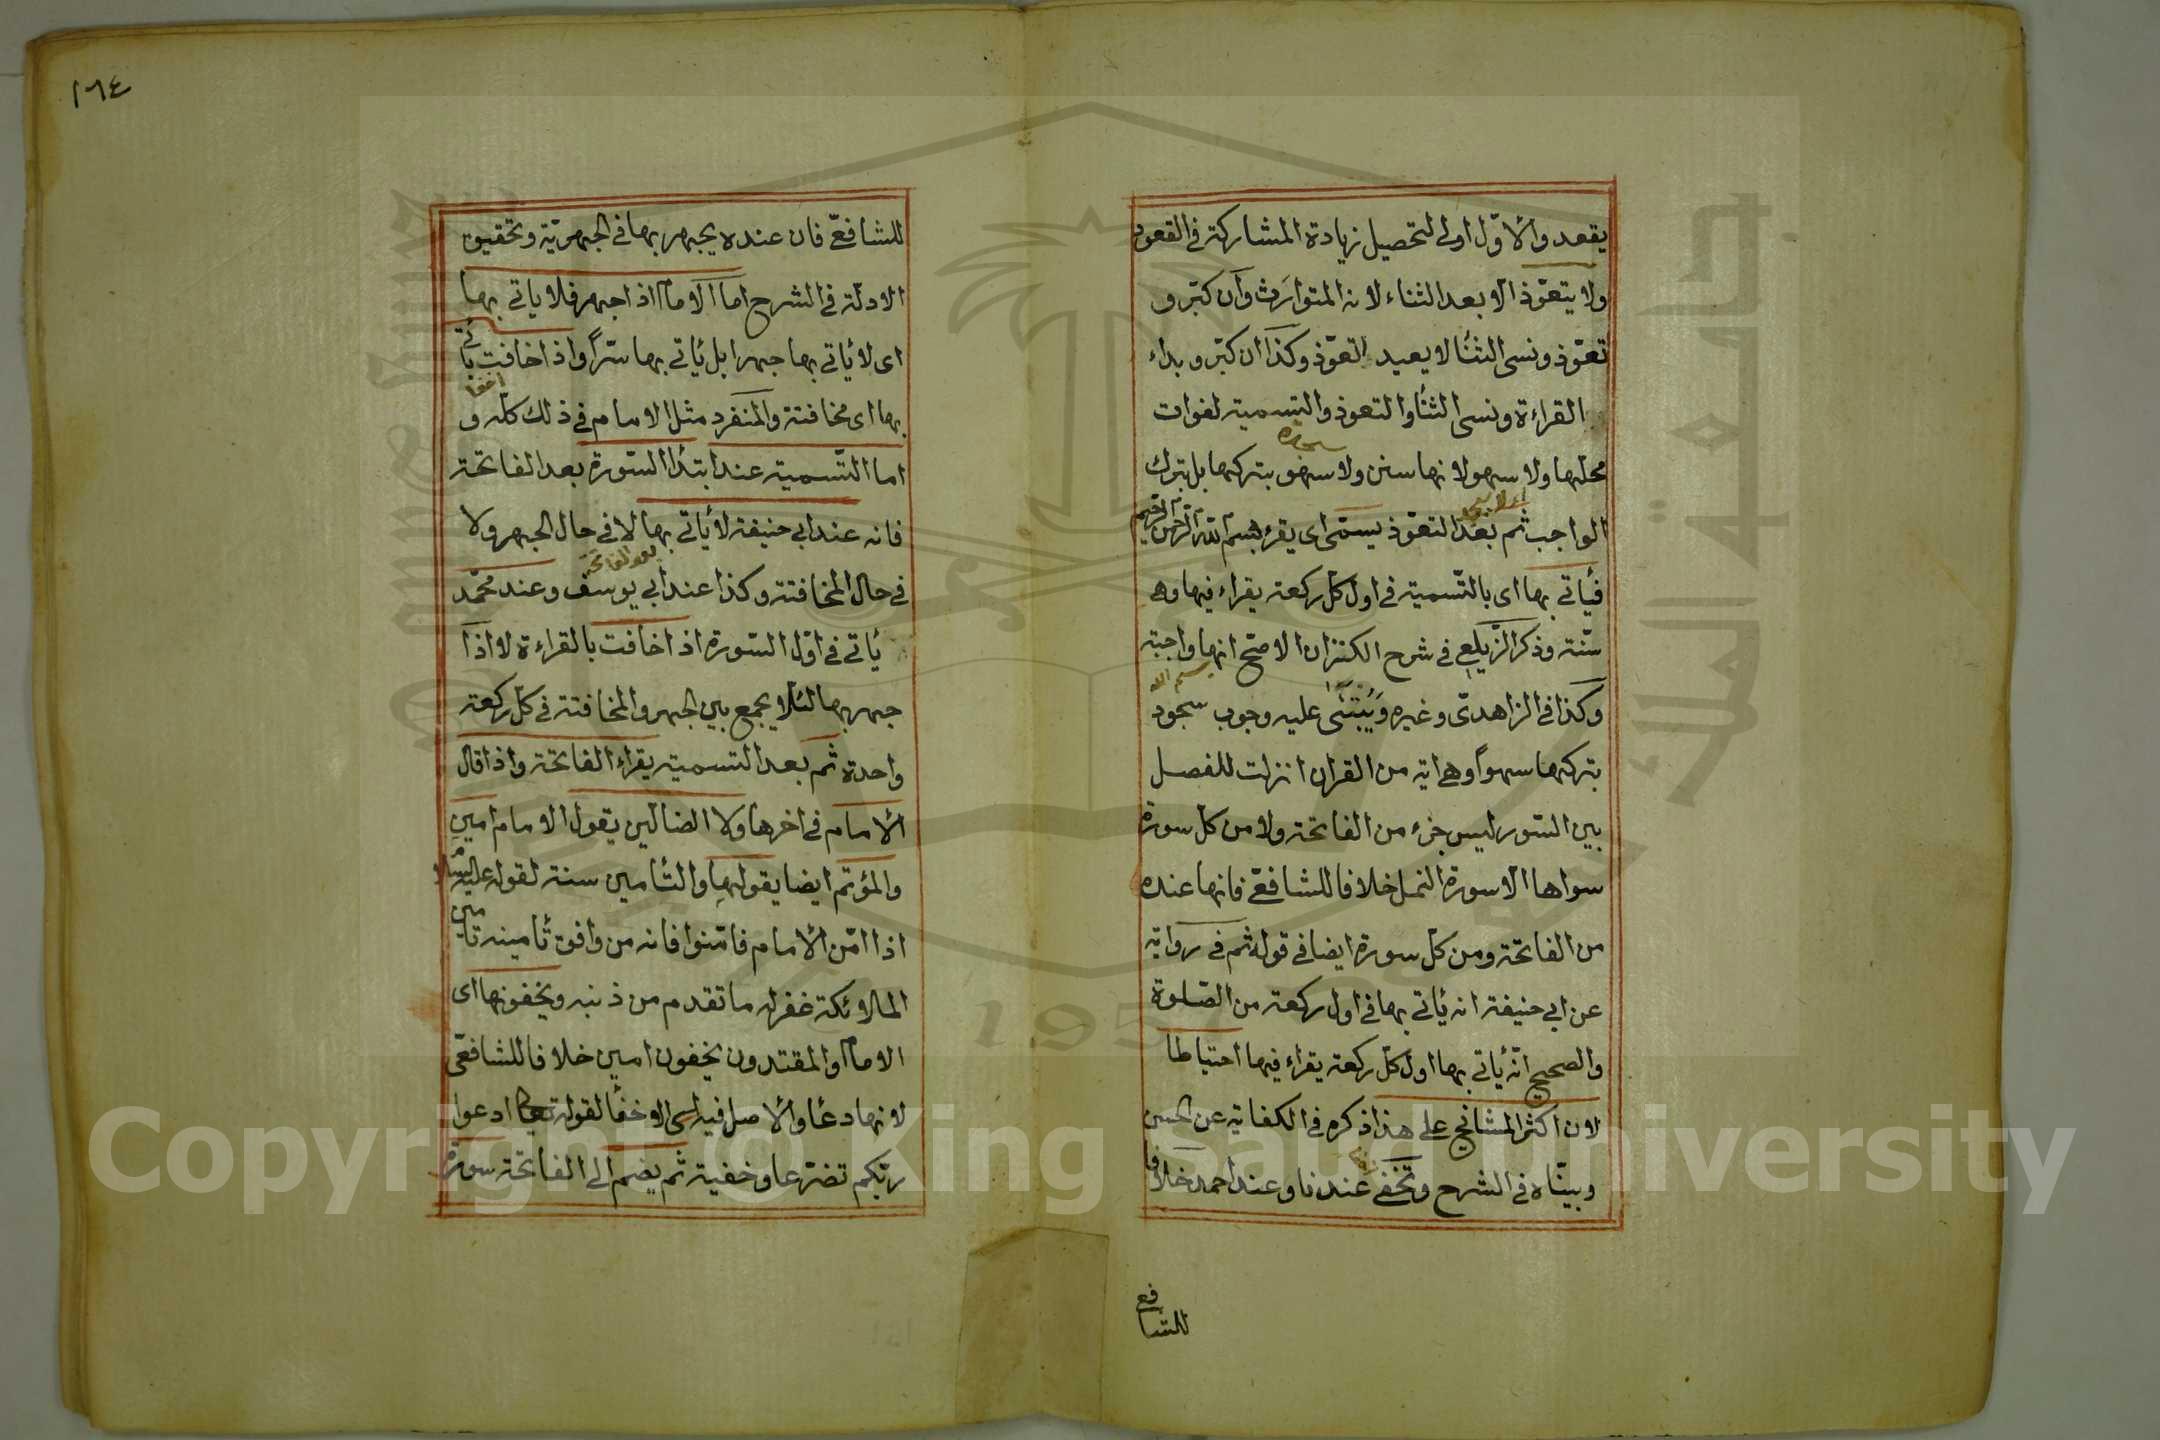 يقعد والاوّل اولى لتحصيل زيادة المشاركة في القعود
ولا يتعوّذ الا بعد الثناء لانه المتوارَث وان كبّر و
تعوّذ ونسى الثنا لا يعيد التعوّذ وكذا ان كبّر وبداء
القراءة ونسى الثنا والتعوذ والتسمية لفوات
محلها ولا سهو لانها سنن ولا سهو بتركها بل بترك
الواجب ثم بعد التعوّذ يسمّى اى يقرء بسم الله الرحمن الرحيم
فيأتي بها اى بالتّسمية في اول كل ركعة يقراء فيها وهى
سنّة وذكر الزّيلعي في شرح الكنز ان الاصحّ انها واجبة
وكذا في الزاهدىّ وغيره ويبتنى عليه وجوب سجود
بتركها سهواً وهى اية من القران انزلت للفصل
بين السّور ليس جزء من الفاتحة ولا من كل سورة
سواها الا سورة النمل خلافا للشافعىّ فانها عنده
من الفاتحة ومن كلّ سورة ايضا في قوله ثم في رواية
عن ابي حنيفة انه يأتي بها في اول ركعة من الصّلوة
والصحيح انّه يأتي بها اول كلّ ركعة يقراء فيها احتياطا
لان اكثر المشائخ على هذا ذكره في الكفاية عن الحسن
وبيّناه في الشرح وتخفى عندنا وعند احمد خلافا
للشافع
١٦٤
للشافعىّ فان عنده يجهر بها في الجهريّة وتحقيق
الادلّة في الشرح اما الامام اذا جهر فلا ياتي بها
اى لا يأتي بها جهرا بل يأتي بها سرّاً واذا خافت يأتي
بها اى مخافتة والمنفرد مثل الامام في ذلك كلّه و
اما التّسمية عند ابتدأ السّورة بعد الفاتحة
فانه عند ابي حنيفة لا يأتي بها لا في حال الجهر ولا
بعد الفاتحة
في حال المخافتة وكذا عند ابي يوسف وعند محمّد
يأتي في اوّل السّورة اذا خافت بالقراءة لا اذا
جهر بها لئلا يجمع بين الجهر والمخافتة في كلّ ركعة
واحدة ثم بعد التسمية يقراء الفاتحة واذا قال
الامام في اخرها ولا الضالّين يقول الامام امين
والمؤتمّ ايضا يقولها والتأمين سنة لقوله عليه السلام
اذا امّن الامام فامّنوا فانه من وافق تأمينه تأمين
الملائكة غفر له ما تقدم من ذنبه ويخفونها اى
الامام والمقتدون يخفون امين خلافا للشافعىّ
لانها دعا والاصل فيه الاخفا لقوله تعالى ادعوا
ربّكم تضرّعا وخفية ثم يضم الى الفاتحة سورة
Copyright © King Saud University
جامعة الملك سعود
King Saud University
195